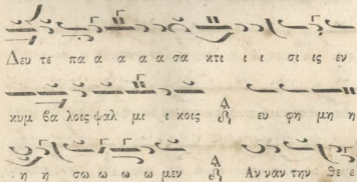 Δευ τε πα α α α α σα κτι ι ι σι ις εν
κυμ βα λοις ψαλ μι ι κοις ευ φη μη η
η η σω ω ω ω μεν Αν ναν την θε ε